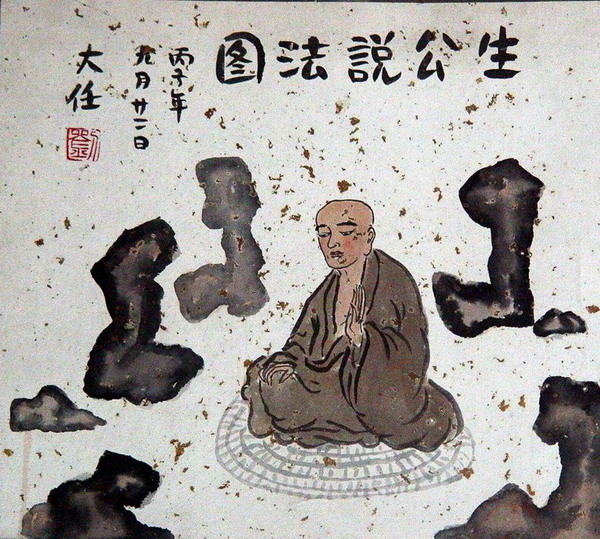 生公説法图
丙子年
九月廿二日
大任
劉